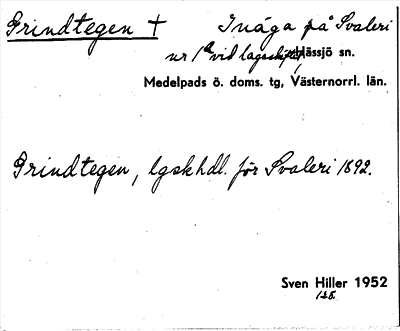 Grindtegen † Inäga på Svaleri
nr 1 a vid lagaskifte, Hässjö sn.
Medelpads ö. doms. tg, Västernorrl. län.
Grindtegen, lgskhdl. för Svaleri 1892.
Sven Hiller 1952